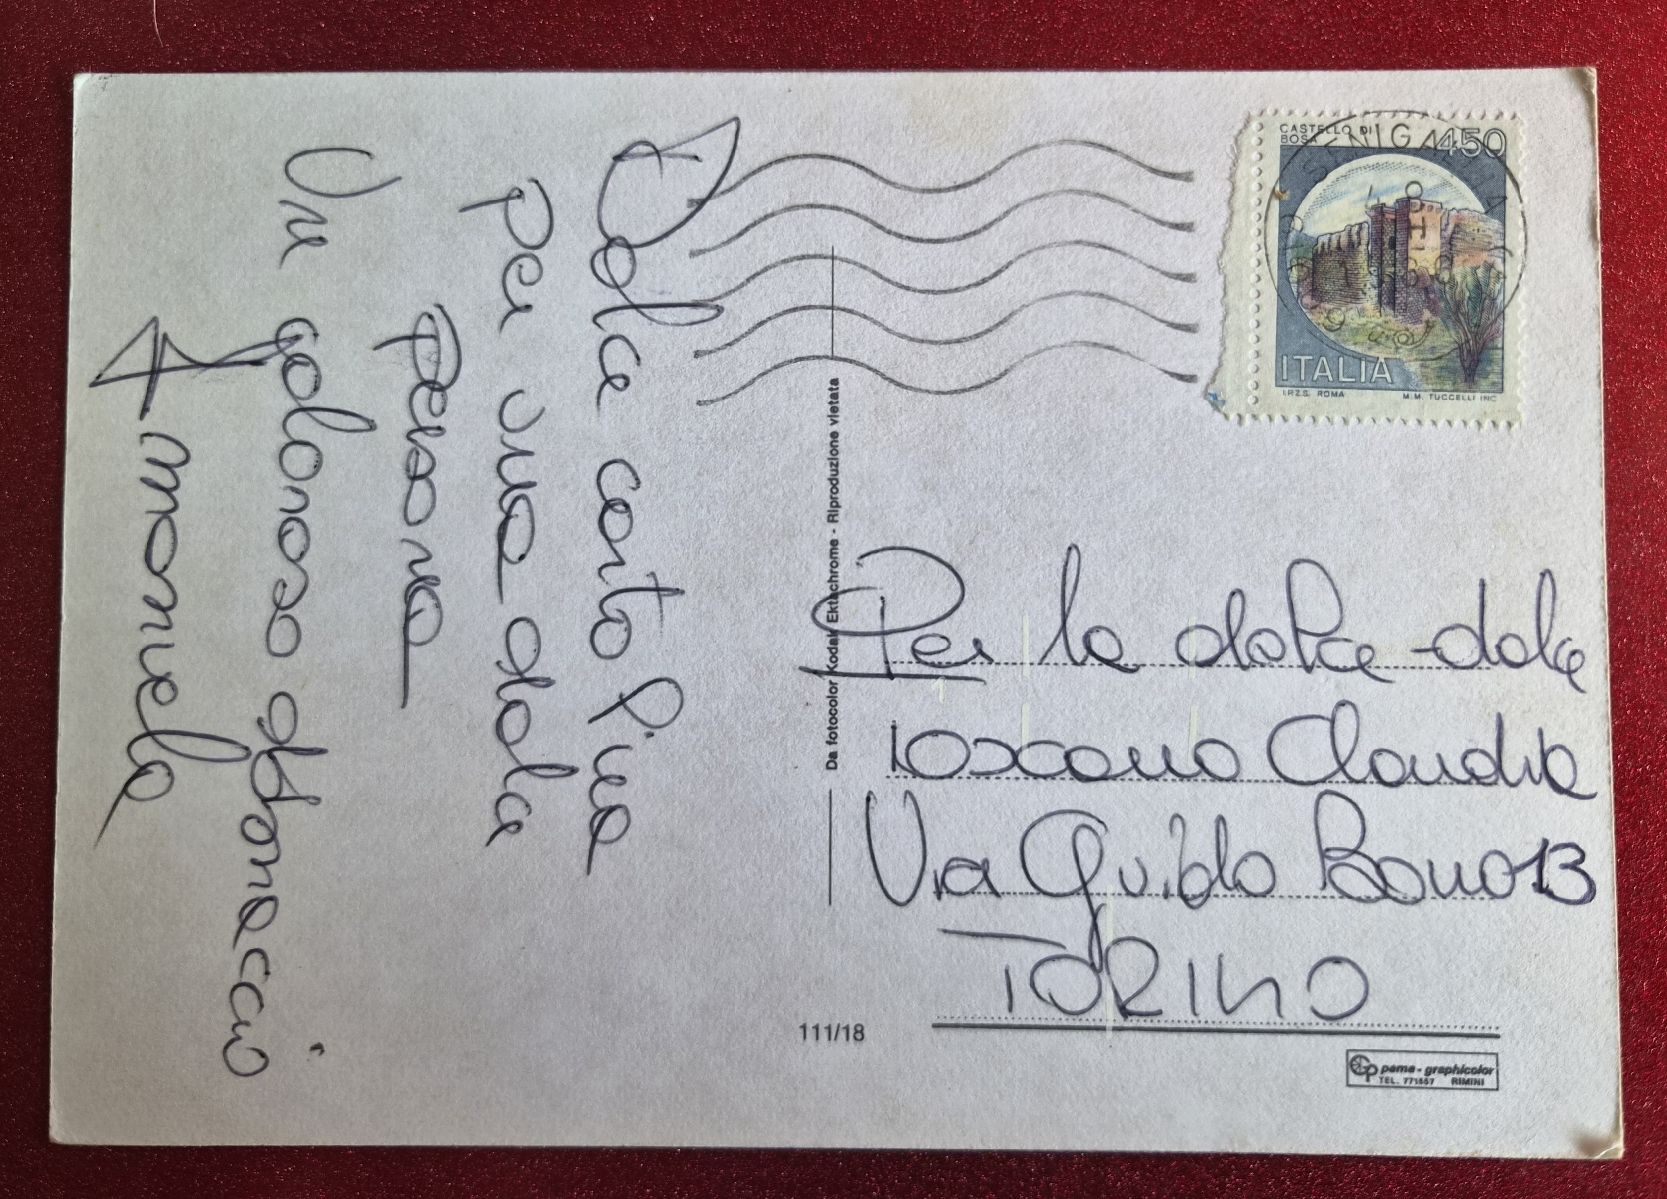 Dolce cartolina
per una dolce
persona
Un goloso abbraccio
Manuela
CASTELLO DI
BOSA
450
ITALIA
I.P.Z.S. ROMA
M.M. TUCCELLI INC.
Da fotocolor Kodak Ektachrome - Riproduzione vietata
Per la dolce-dolce
Toscano Claudia
Via Guido Bono 13
TORINO
111/18
pama - graphicolor
TEL. 771557 RIMINI